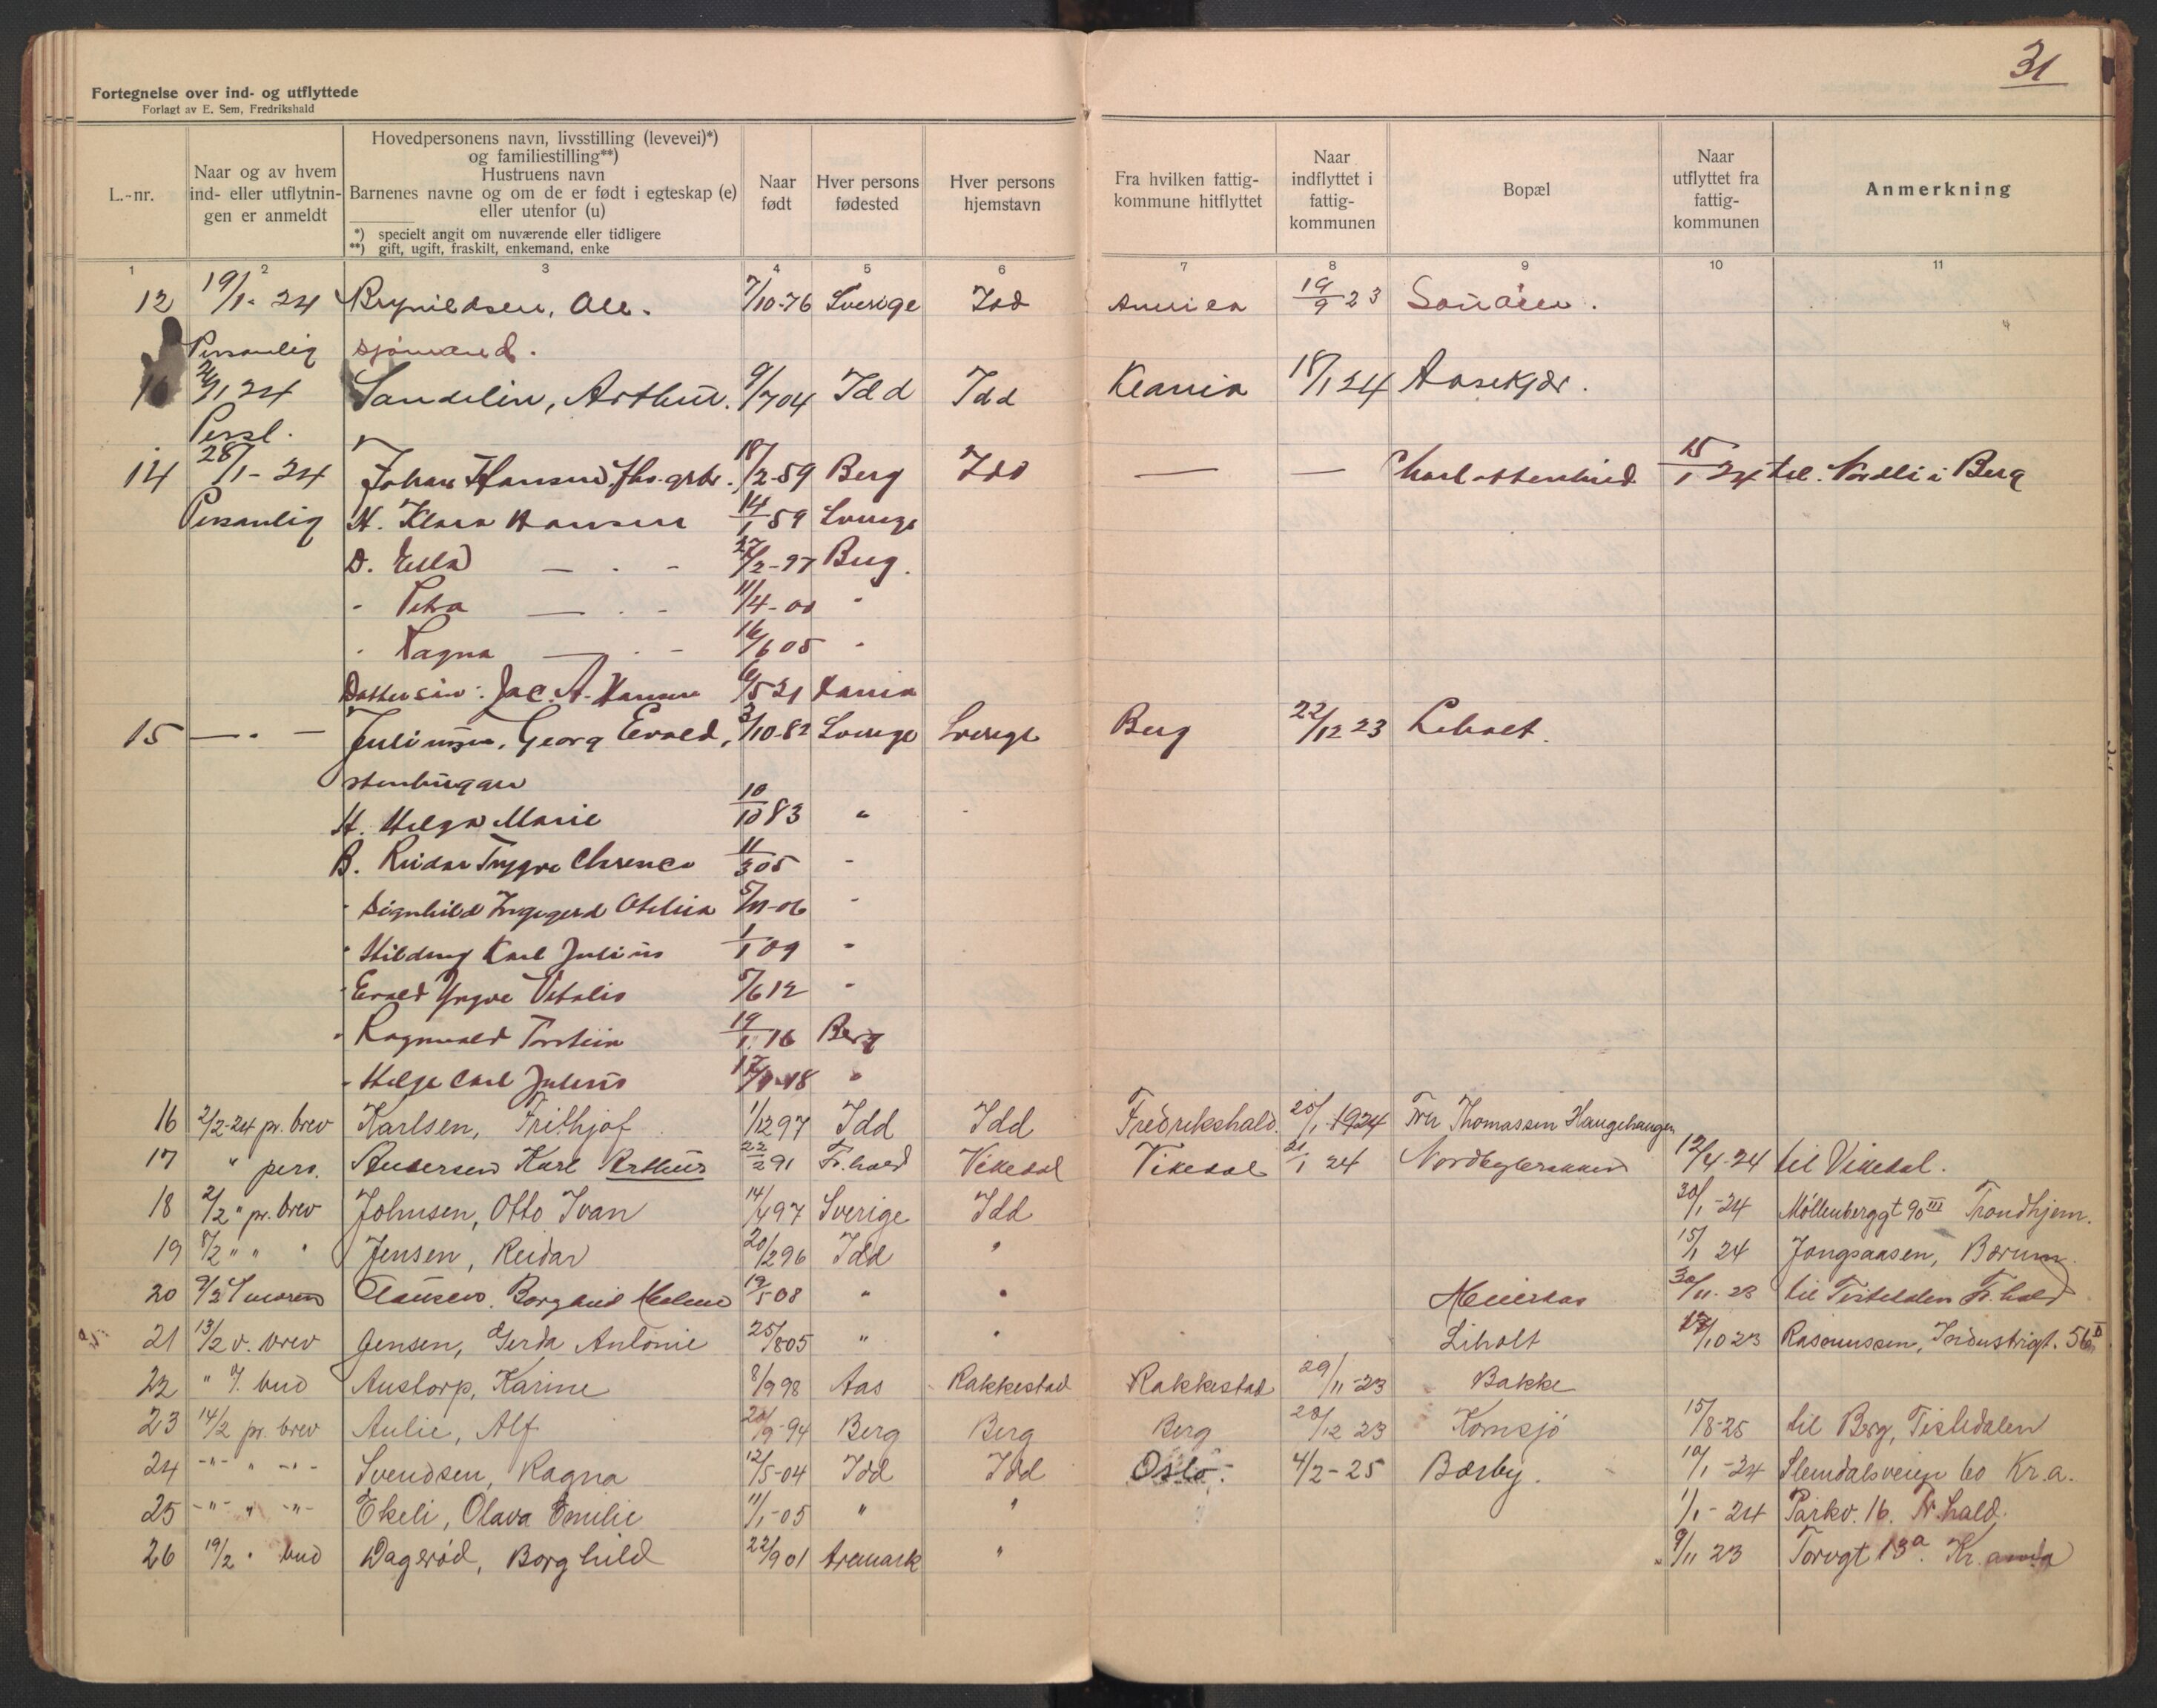 31
Fortegnelse over ind- og utflyttede
Forlagt av E. Sem, Fredrikshald
L.-nr.
Naar og av hvem
ind- eller utflytnin-
gen er anmeldt
Hovedpersonens navn, livsstilling (levevei)*)
og familiestilling**)
Hustruens navn
Barnenes navne og om de er født i egteskap (e)
eller utenfor (u)
*) specielt angit om nuværende eller tidligere
**) gift, ugift, fraskilt, enkemand, enke
Naar
født
Hver persons
fødested
Hver persons
hjemstavn
Fra hvilken fattig-
kommune hitflyttet
Naar
indflyttet i
fattig-
kommunen
Bopæl
Naar
utflyttet fra
fattig-
kommunen
Anmerkning
1 2 3 4 5 6 7 8 9 10 11
12 19/1-24 Brynildsen, Ole. 7/10-76 Sverige Idd 19/9 23
Personlig sjømand.
24 Sandelin, Arthur. 9/7 04 Idd Idd Krania 18/1 24 Aasekjær.
Persl.
14 28/1-24 Johan Hansen 18/2-59 Berg Idd — — 15/1 24 til Nordli i Berg
Personlig H. Klara Hansen 14/1 59 Sverige
D. Ella — . - 27/2-97 Berg.
- Petra — . - 11/4-00 "
- Ragna — . - 16/6 05 "
Dattersøn: Jac. A. Hansen 6/5 21 Krania
15 — . — Juliussen, Georg Evald, 3/10-82 Sverige Sverige Berg 22/12 23 Liholt.
stenhugger
H. Helga Marie 10/10 83 "
B. Reidar Trygve Clarence 11/3 05 -
- Signhild Ingegerd Otelia 5/11-06 -
- Hilding Karl Julius 1/1 09 -
- Evald Yngve Vitalis 5/6 12 -
- Ragnvald Torstein 19/1 16 Berg
- Helge Carl Julius 18 "
16 2/2-24 pr. brev Karlsen, Frithjof 1/12 97 Idd Idd Fredrikshald. 25/1 1924 Thomassen Haugehaugen
17 " pers. Andersen Karl Arthur 22/2 91 Fr.hald Vikedal Vikedal 21/1 24 12/4-24 til Vikedal.
18 2/2 " pr. brev Johnsen, Otto Ivan 14/4 97 Sverige Idd 30/1-24 Møllenberggt 90 III Trondhjem.
19 5/2 " " " Jensen, Reidar 20/2 96 Idd " 15/1 24 Jongsaasen, Bærum.
20 9/2 Clausen, Borghild Helene 19/5 08 " " 30/11-23 til Tistedalen Fr.hald
21 13/2 v. brev Jensen, Gerda Antonie 25/8 05 " " Liholt 10 23 Rasmussen, Industrigt. 56
22 " bud Austorp, Karine 8/9 98 Aas Rakkestad Rakkestad 29/11-23 Bakke
23 14/2 pr. brev Aulie, Alf 20/9-94 Berg Berg Berg 28/12 23 Kornsjø 15/8-25 til Berg, Tistedalen
24 -"- " -"- Svendsen, Ragna 12/5-04 Idd Idd Oslo. 4/2-25 Bærby. 10/1-24 Slemdalsveien 60 Kr.a.
25 -"- " -"- Ekeli, Olava Emilie 11/1-05 " " 1/1-24 Parkv. 16. Fr.hald.
26 19/2 " bud Dagsrød, Borghild 22/9 01 Aremark " 9/11 23 Torvgt 13a. Kr.